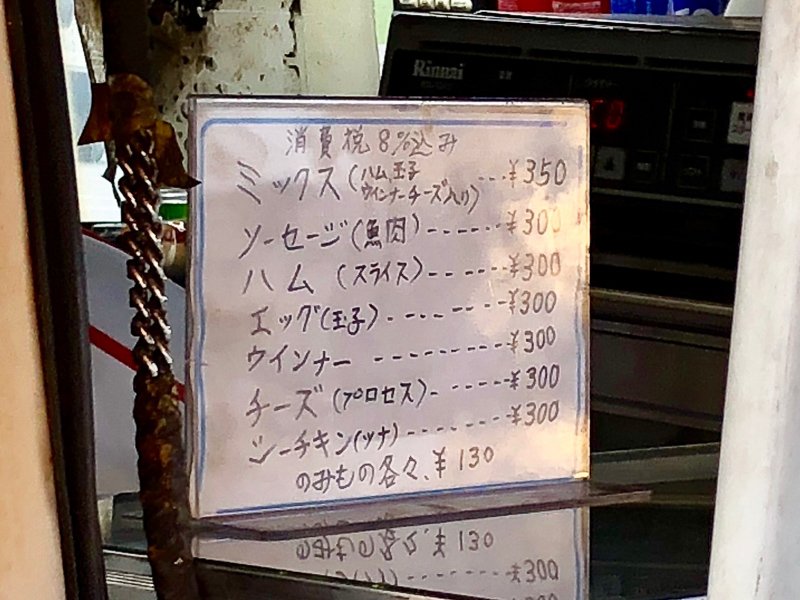 Rinnai
消費税8%込み
ミックス(ハム玉子ウインナーチーズ入り)---¥350
ソーセージ(魚肉)------¥300
ハム(スライス)------¥300
エッグ(玉子)-------¥300
ウインナー --------¥300
チーズ(プロセス)-------¥300
シーチキン(ツナ)-------¥300
のみもの各々、¥130